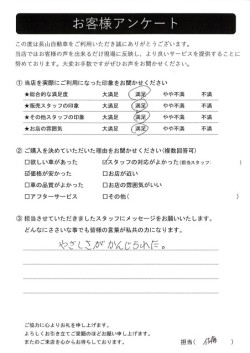 お客様アンケート
この度は長山自動車をご利用いただき誠にありがとうございます。
当店ではお客様の声を出来るだけ現場に反映し、より良いサービスを提供することに
努めております。大変お手数ですがぜひお声をお聞かせください。
① 当店を実際にご利用になった印象をお聞かせください
★総合的な満足度 大満足 満足 やや不満 不満
★販売スタッフの印象 大満足 満足 やや不満 不満
★その他スタッフの印象 大満足 満足 やや不満 不満
★お店の雰囲気 大満足 満足 やや不満 不満
② ご購入を決めていただいた理由をお聞かせください(複数回答可)
□欲しい車があった ☑スタッフの対応がよかった(担当スタッフ: )
☑価格が安かった □お店が近い
□車の品質がよかった □お店の雰囲気がいい
□アフターサービス □その他( )
③ 担当させていただきましたスタッフにメッセージをお願いいたします。
どんなにささいな事でも皆様の言葉が私共の力になります。
やさしさがかんじられた。
ご協力に心よりお礼を申し上げます。
よろしくお引き立てご愛顧のほどお願い申し上げます。
またのご来店を心からお待ちしております。 担当( )